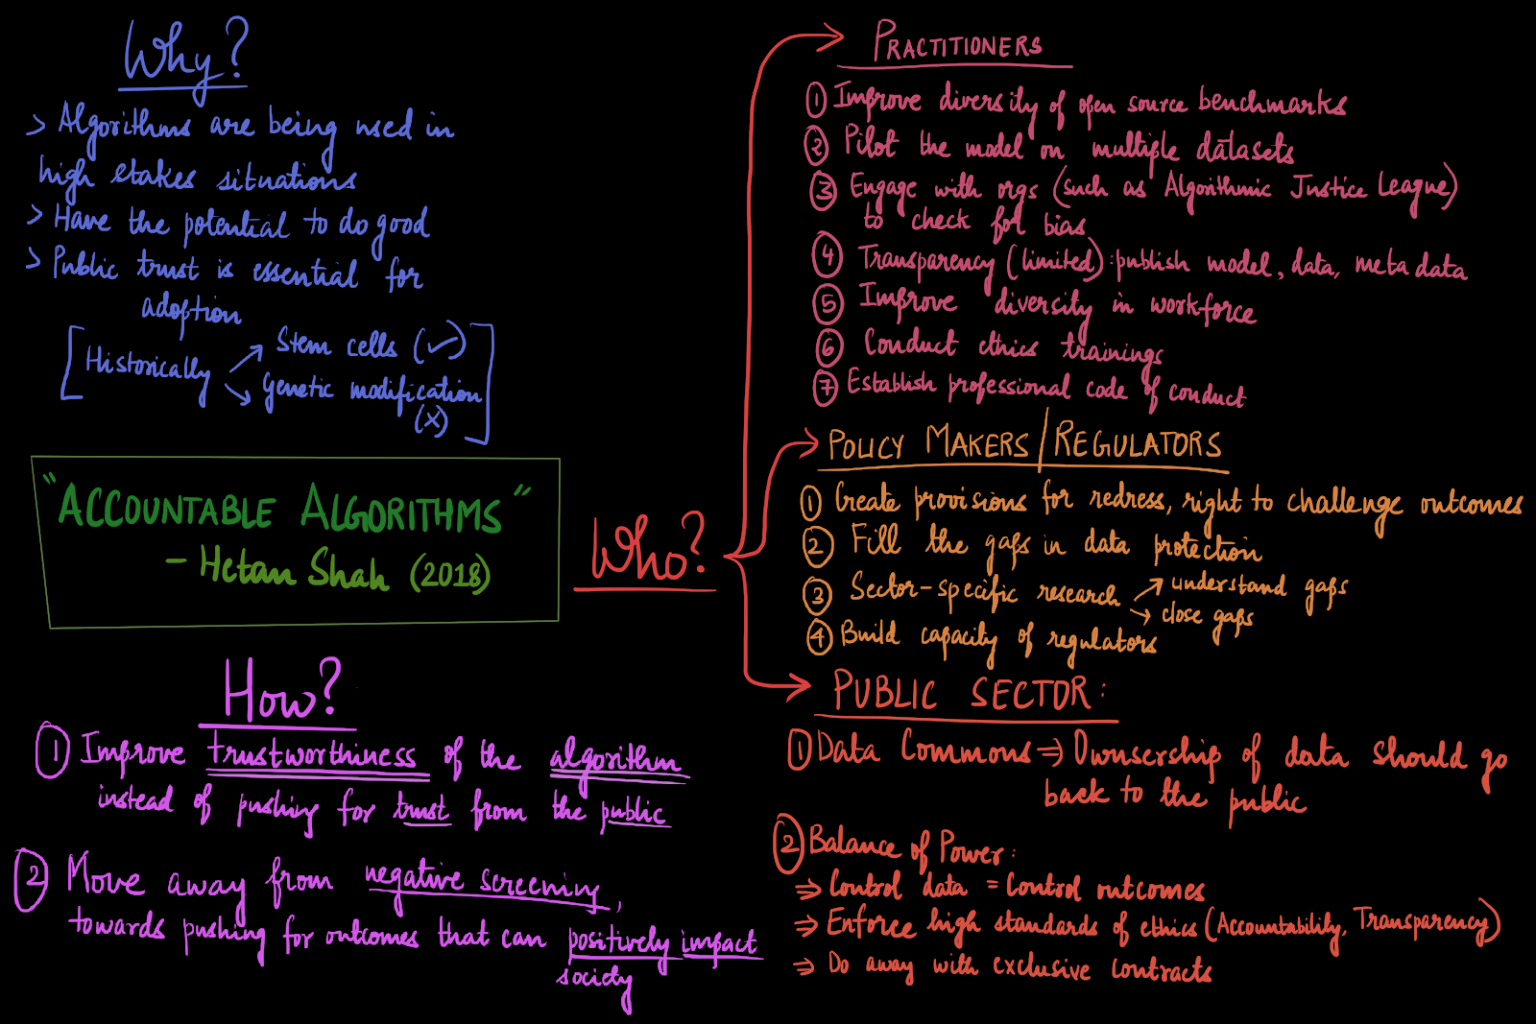 Why?
> Algorithms are being used in
high stakes situations
> Have the potential to do good
> Public trust is essential for
adoption
[Historically → Stem cells (✓)
→ Genetic modification
(x)]
"ACCOUNTABLE ALGORITHMS"
- Hetan Shah (2018)
How?
① Improve trustworthiness of the algorithm
instead of pushing for trust from the public
② Move away from negative screening,
towards pushing for outcomes that can positively impact
society
Who?
PRACTITIONERS
① Improve diversity of open source benchmarks
② Pilot the model on multiple datasets
③ Engage with orgs (such as Algorithmic Justice League)
to check for bias
④ Transparency (limited): publish model, data, meta data
⑤ Improve diversity in workforce
⑥ Conduct ethics trainings
⑦ Establish professional code of conduct
POLICY MAKERS/REGULATORS
① Create provisions for redress, right to challenge outcomes
② Fill the gaps in data protection
③ Sector-specific research → understand gaps
→ close gaps
④ Build capacity of regulators
PUBLIC SECTOR:
① Data Commons ⇒ Ownsership of data should go
back to the public
② Balance of Power:
⇒ Control data = Control outcomes
⇒ Enforce high standards of ethics (Accountability, Transparency)
⇒ Do away with exclusive contracts